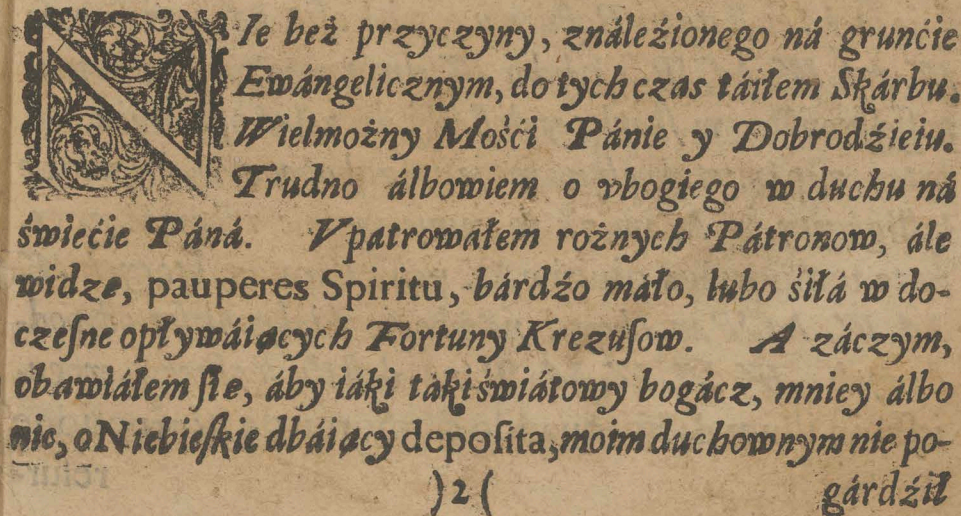 NIe beż przyczyny, ználeźionego ná grunćie
Ewángelicznym, do tych czas táiłem Skárbu.
Wielmożny Mośći Pánie y Dobrodźieiu.
Trudno álbowiem o vbogiego w duchu ná
świećie Páná. Vpatrowałem rożnych Pátronow, ále
widze, pauperes Spiritu, bárdźo máło, lubo śiłá w do-
czeſne opływáiących Fortuny Krezuſow. A záczym,
obawiáłem ſie, áby iáki táki świátowy bogácz, mniey álbo
nic, o Niebieſkie dbáiący depoſita, moim duchownym nie po-
)2( gárdźił